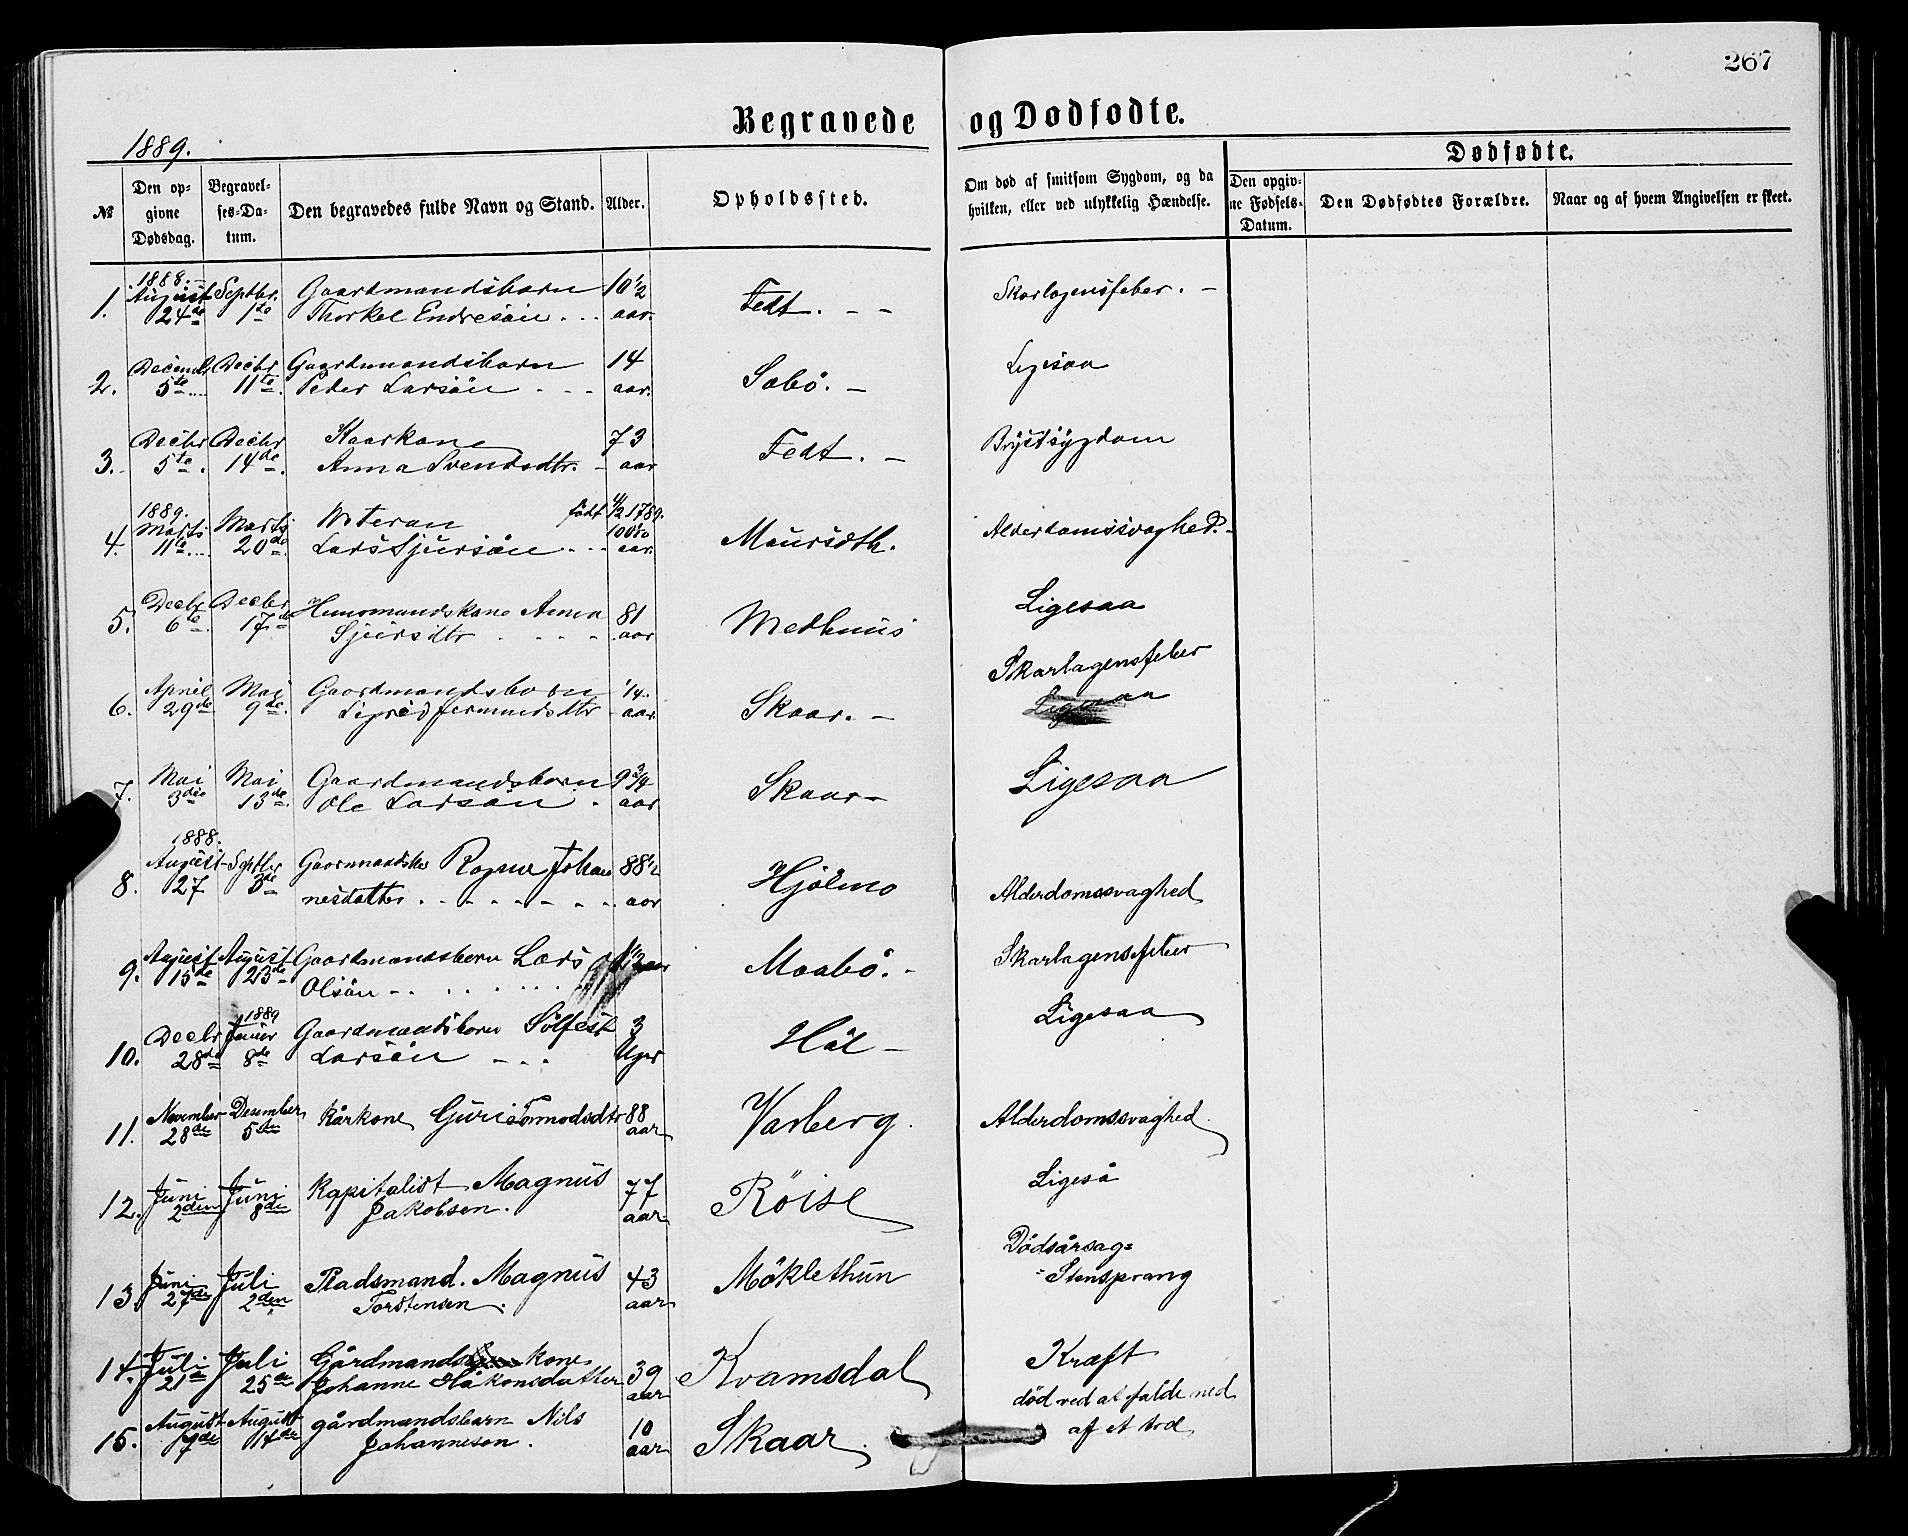 267
Begravede og Dødfødte.
1889.
Dødfødte.
№ Den opgivne Dødsdag. Begravelses-Datum. Den begravedes fulde Navn og Stand. Alder. Opholdssted. Om død af smitsom Sygdom, og da hvilken, eller ved ulykkelig Hændelse. Den opgivne Fødsels-Datum. Den Dødfødtes Forældre. Naar og af hvem Angivelsen er skeet.
1888.
1. August Septbr. Gaardmandsbarn 10 1/2 Fedt. - - Skarlagensfeber. -
24de 1te Thorkel Endresön . . . aar.
2. Decembr Decbr Gaardmandsbarn 14 Säbö. - Ligesaa
5te 11te Peder Larsön - - - aar.
3. Decbr Decbr Kaarkone 73 Fedt. - Brystsygdom
5te. 14de. Anna Svendsdtr. - aar
1889.
4. Marts Marts Veteran født 4/2 1789. Maursdth. Alderdomssvaghed. -
11te 20de Lars Sjursön - - - 100 aar.
5. Decbr Decbr Huusmandskone Anna 81 Medhuus Ligesaa
6te 17de Sjursdtr . . . - aar
6. April Mai Gaardmandsbarn 1/4. Skaar. - Skarlagensfeber
29de 9de. Sigrid Jermundsdtr - aar. Ligesaa
7. Mai Mai Gaardmandsbarn 9 3/4 Skaar - Ligesaa
3die 13de. Ole Larsön . aar
1888.
8. August Septbr Gaarmandsko Ragna Johan 88 1/2 Hjölmo Alderdomssvaghed
27 3de nesdatter . - . - . - . - . aar
9. August August Gaardmandsbarn Lars 1 1/2 aar Maabö. - Skarlagensfeber
15de 23de Olsön - . . . . .
1889
10. Decbr Januar Gaardmandsbarn Sölfest 3 Höl - Ligesaa
28de 8de Larsön - - . Uger
11. November Desember Kårkone Guri Tormodsdtr 88 Varberg. Alderdomssvaghed.
28de 5de aar
12. Juni Juni Kapitalist Magnus 77 Röise Ligeså
2den 8de Jakobsen. aar
13. Juni Juli Pladsmand. Magnus 43 Möklethun Dödsårsag=
27de 2den Torstensen. aar =Stensprang
14. Juli Juli Gårdmands kone 39 Kvamsdal Kræft
21de 25de Johanne Håkonsdatter aar
15. August August gårdmandsbarn Nils 10 Skaar. död ved at falde ned
14de Johannesen. aar af et træ